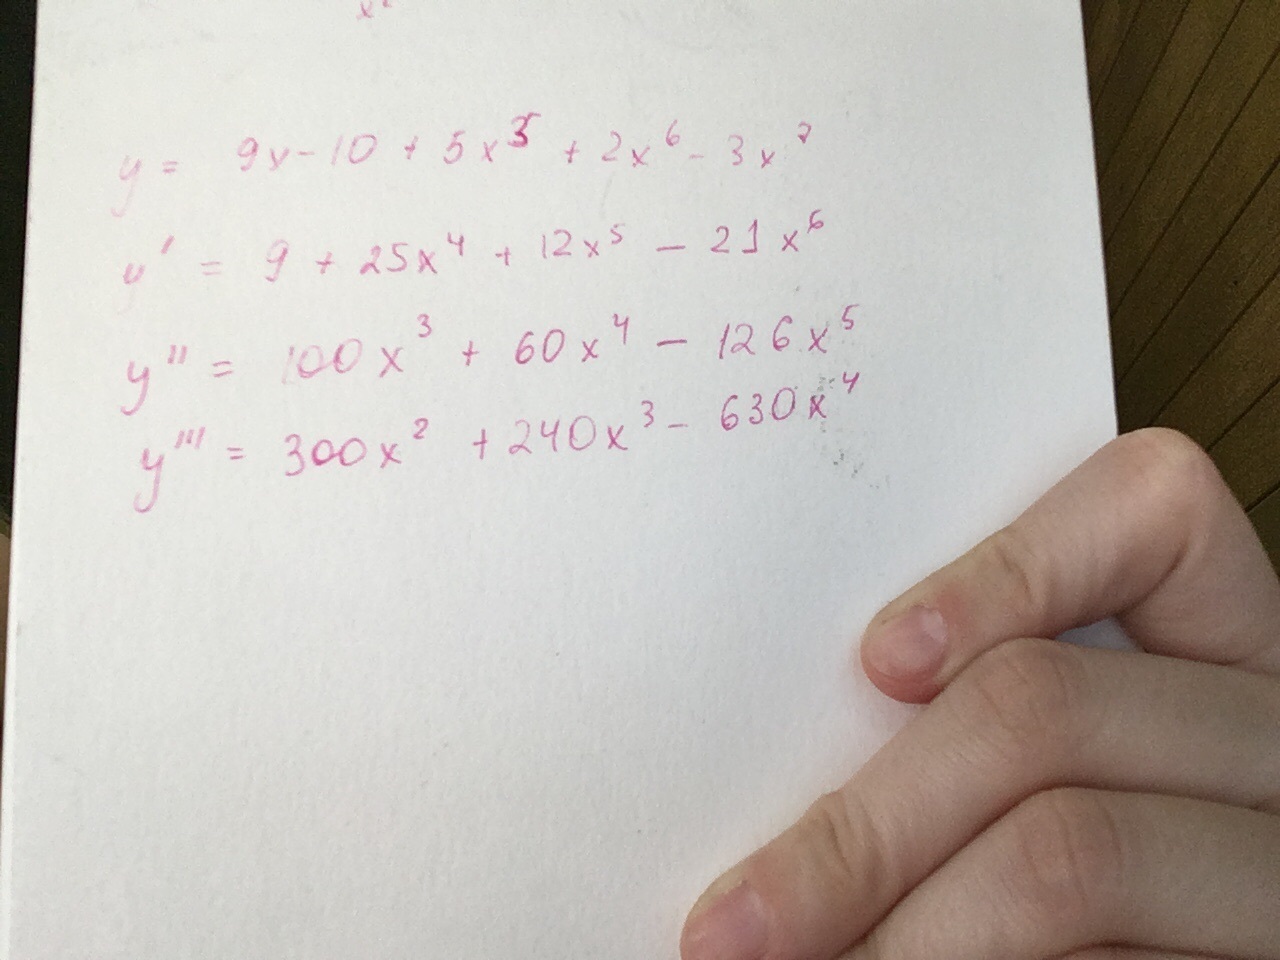 x²
y = 9x - 10 + 5x⁵ + 2x⁶ - 3x⁷
y' = 9 + 25x⁴ + 12x⁵ - 21x⁶
y'' = 100x³ + 60x⁴ - 126x⁵
y''' = 300x² + 240x³ - 630x⁴